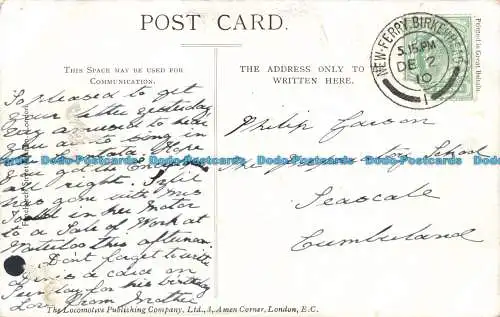 POST CARD.
THIS SPACE MAY BE USED FOR
COMMUNICATION.
THE ADDRESS ONLY TO
WRITTEN HERE.
NEW-FERRY. BIRKENHEAD
5.15 PM
DE 2
10
1
Printed in Great Britain
So pleased to get
your letter yesterday
to hear
you are to sing in
Hope
you got the
all right.
has gone with Mrs
Todd in her Motor
to a Sale of Work at
Waterloo this afternoon.
Don't forget to write
a card on
Sunday for his birthday
Love from Mother
Philip
The Preparatory School
Seascale
Cumberland
Bado-Postcards Bado-Postcards Bado-Postcards Bado-Postcards
The Locomotive Publishing Company, Ltd., 3, Amen Corner, London, E.C.